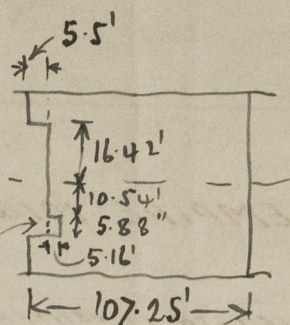 5.5'
16.42'
10.54'
5.88"
5.16'
107.25'